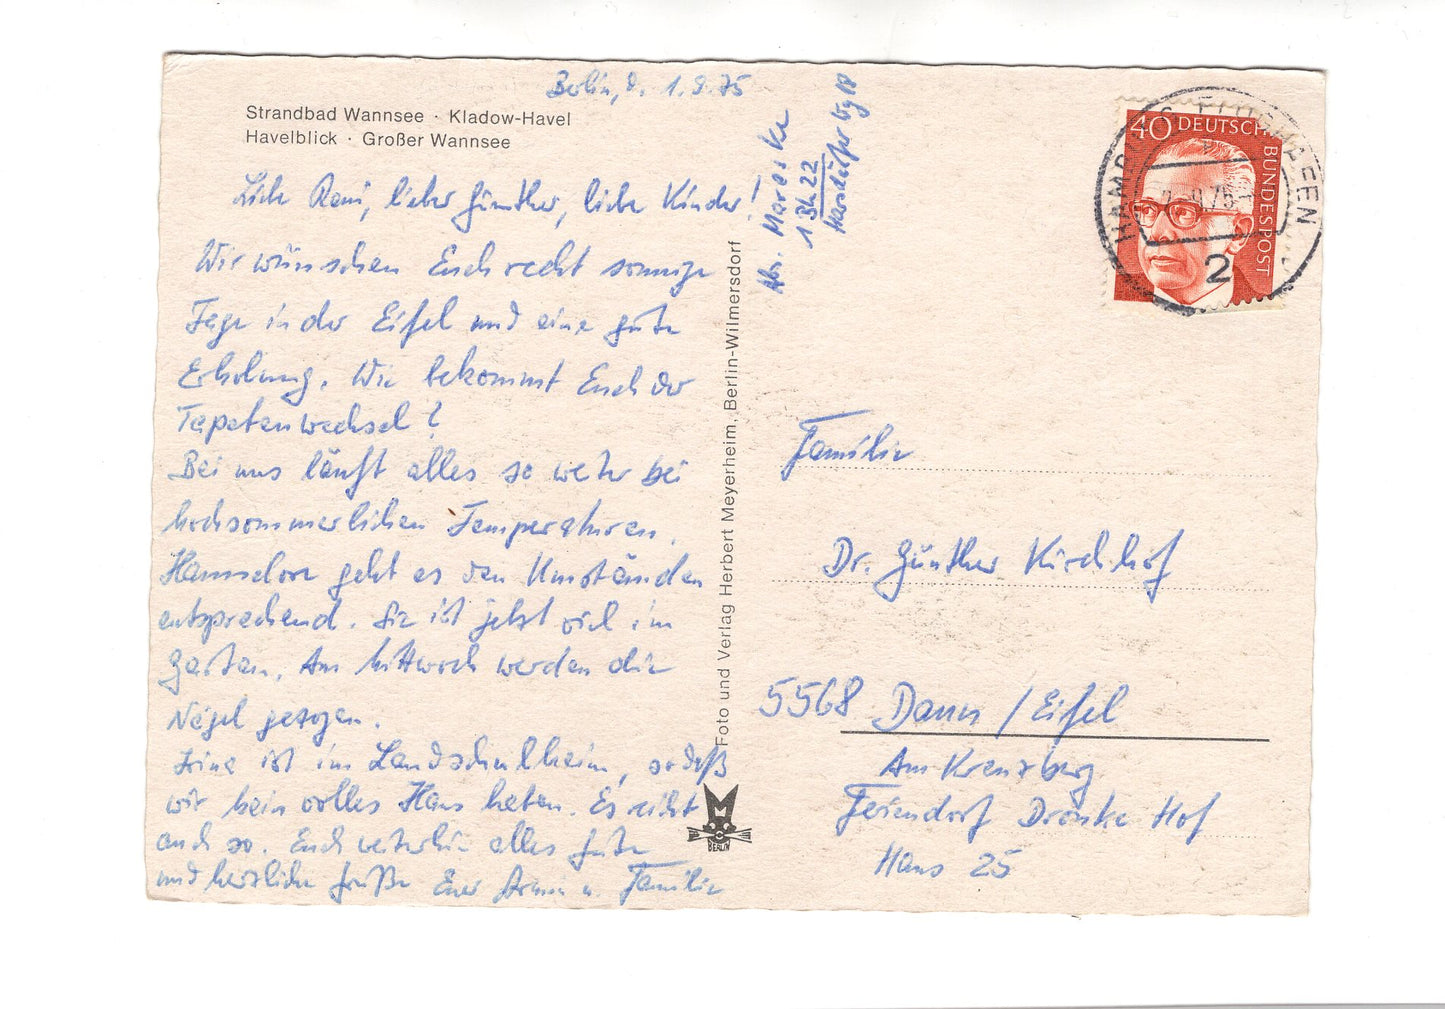 Berlin, d. 1.9.75
Strandbad Wannsee · Kladow-Havel
Havelblick · Großer Wannsee
Liebe Reni, lieber Günther, liebe Kinder!
Wir wünschen Euch recht sonnige
Tage in der Eifel und eine gute
Erholung. Wie bekommt Euch der
Tapetenwechsel?
Bei uns läuft alles so weiter bei
hochsommerlichen Temperaturen.
Hannelore geht es den Umständen
entsprechend. Sie ist jetzt viel im
Garten. Am Mittwoch werden die
Nägel gezogen.
Irina ist im Landschulheim, so daß
wir kein volles Haus haben. Es reicht
auch so. Euch weiterhin alles Gute
und herzliche Grüße Euer Armin u. Familie
Abs. Mareske
1 Bln 22
Foto und Verlag Herbert Meyerheim, Berlin-Wilmersdorf
BERLIN
40 DEUTSCHE BUNDESPOST
HAMBURG FLUGHAFEN
2
Familie
Dr. Günther Kirchhof
5568 Daun / Eifel
Am Kreuzberg
Feriendorf Dronke Hof
Haus 25